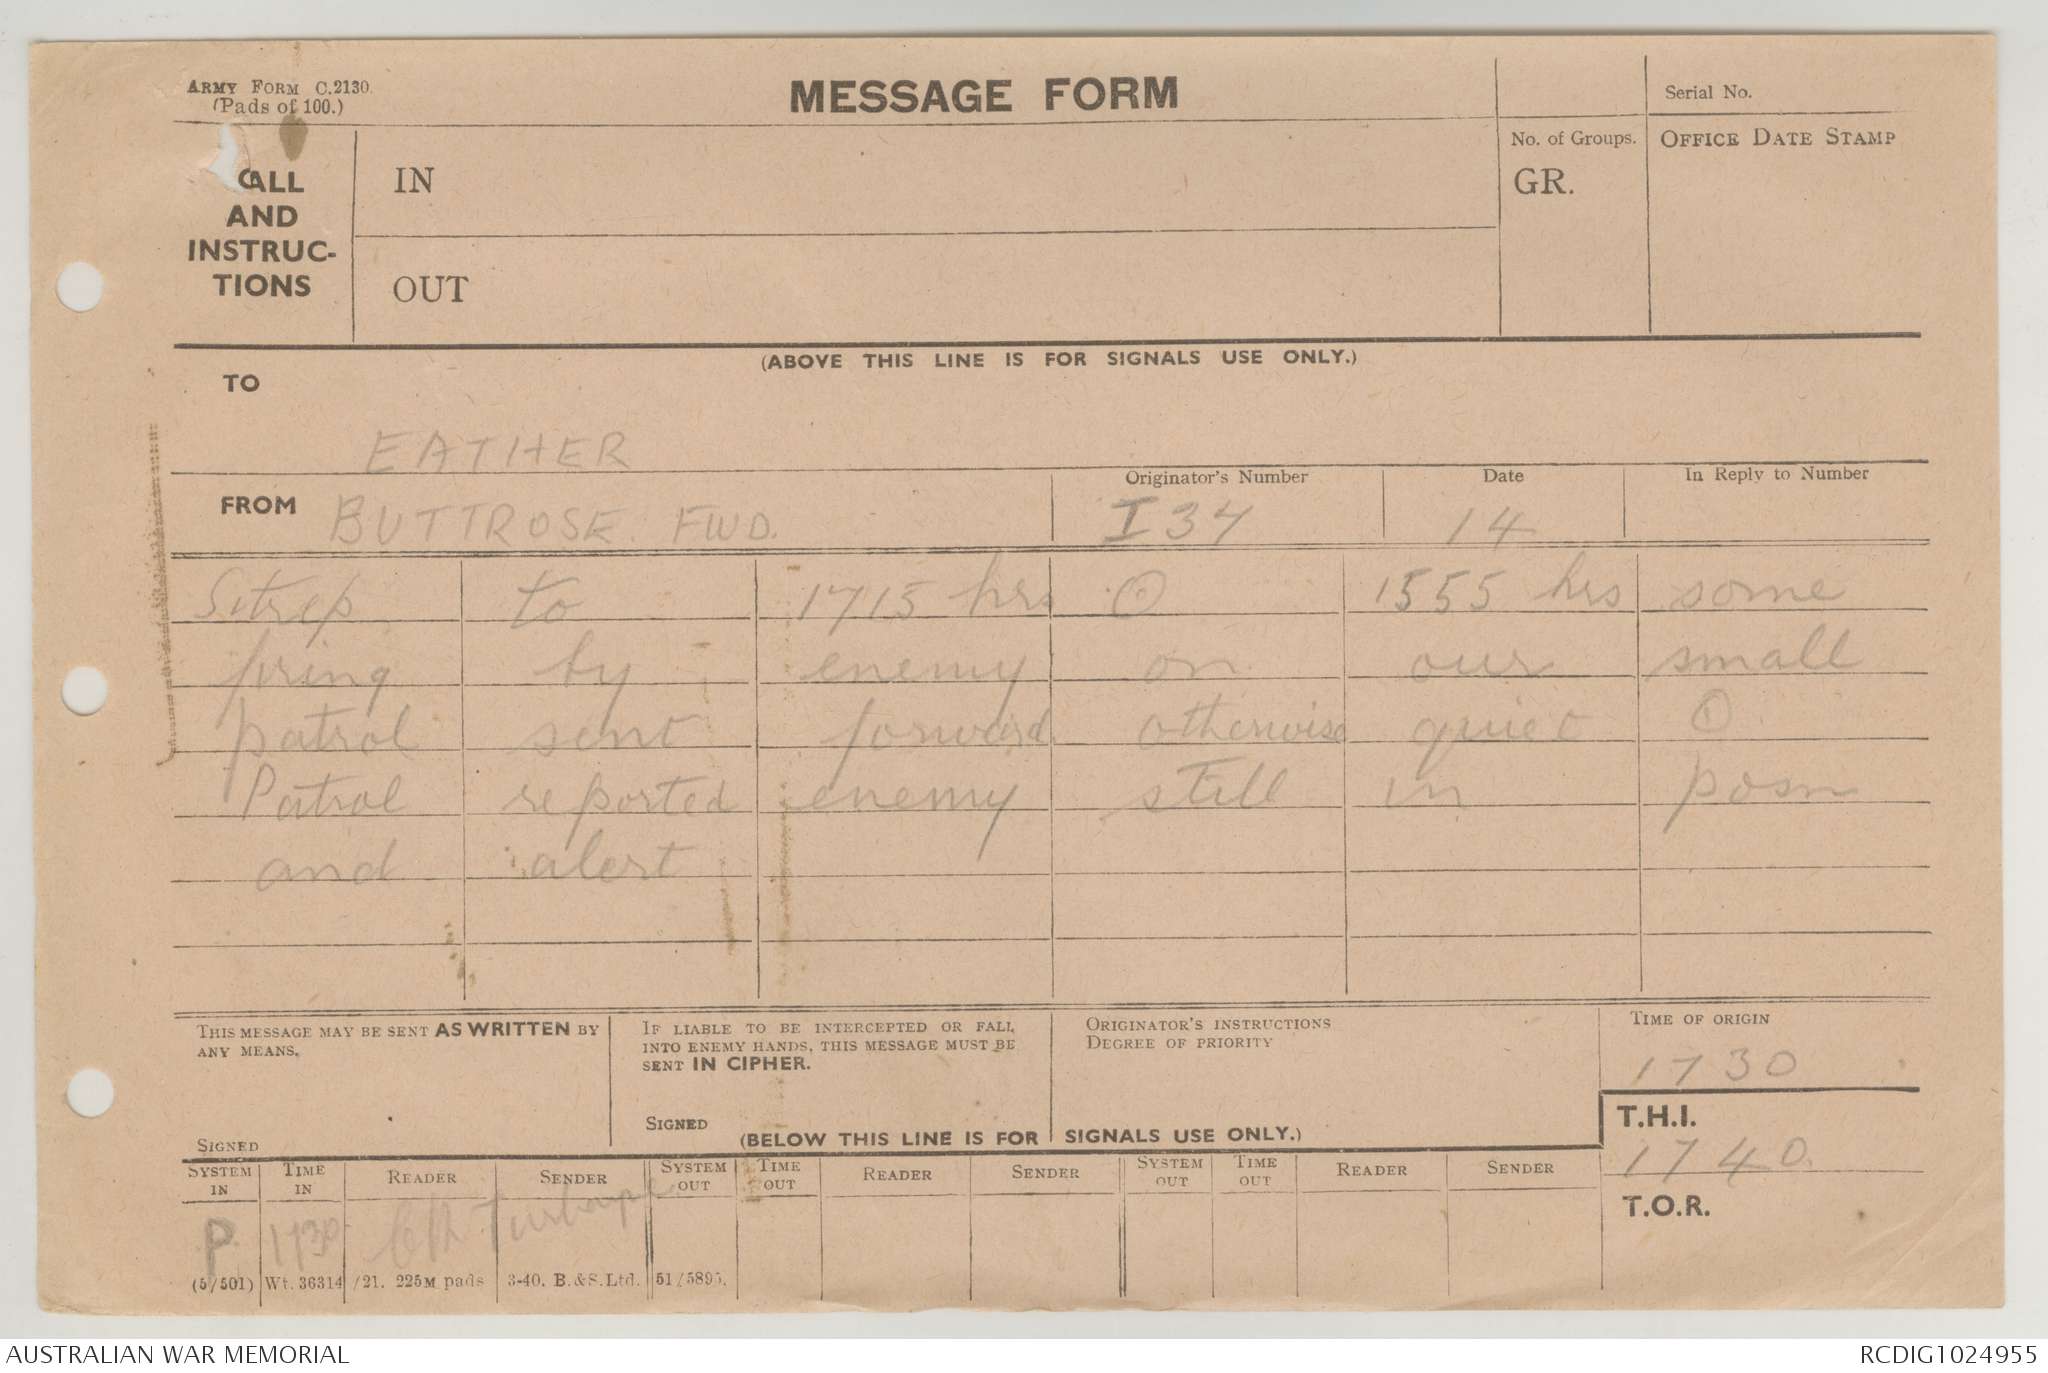 ARMY FORM C.2130.
(Pads of 100.)
MESSAGE FORM
Serial No.
CALL AND INSTRUC-TIONS
IN
OUT
No. of Groups.
GR.
OFFICE DATE STAMP
(ABOVE THIS LINE IS FOR SIGNALS USE ONLY.)
TO
EATHER
FROM BUTTROSE. FWD.
Originator's Number
I 34
Date
14
In Reply to Number
Sitrep to 1715 hrs ⊙ 1555 hrs some
firing by enemy on our small
patrol sent forward otherwise quiet ⊙
Patrol reported enemy still in posn
and alert
THIS MESSAGE MAY BE SENT AS WRITTEN BY
ANY MEANS.
SIGNED
IF LIABLE TO BE INTERCEPTED OR FALL
INTO ENEMY HANDS, THIS MESSAGE MUST BE
SENT IN CIPHER.
SIGNED
ORIGINATOR'S INSTRUCTIONS
DEGREE OF PRIORITY
TIME OF ORIGIN
1730
T.H.I.
1740.
T.O.R.
(BELOW THIS LINE IS FOR SIGNALS USE ONLY.)
SYSTEM IN TIME IN READER SENDER SYSTEM OUT TIME OUT READER SENDER SYSTEM OUT TIME OUT READER SENDER
P. 1730
(5/501) Wt. 36314/21. 225M pads 3-40. B.&S.Ltd. 51/5895.
AUSTRALIAN WAR MEMORIAL
RCDIG1024955